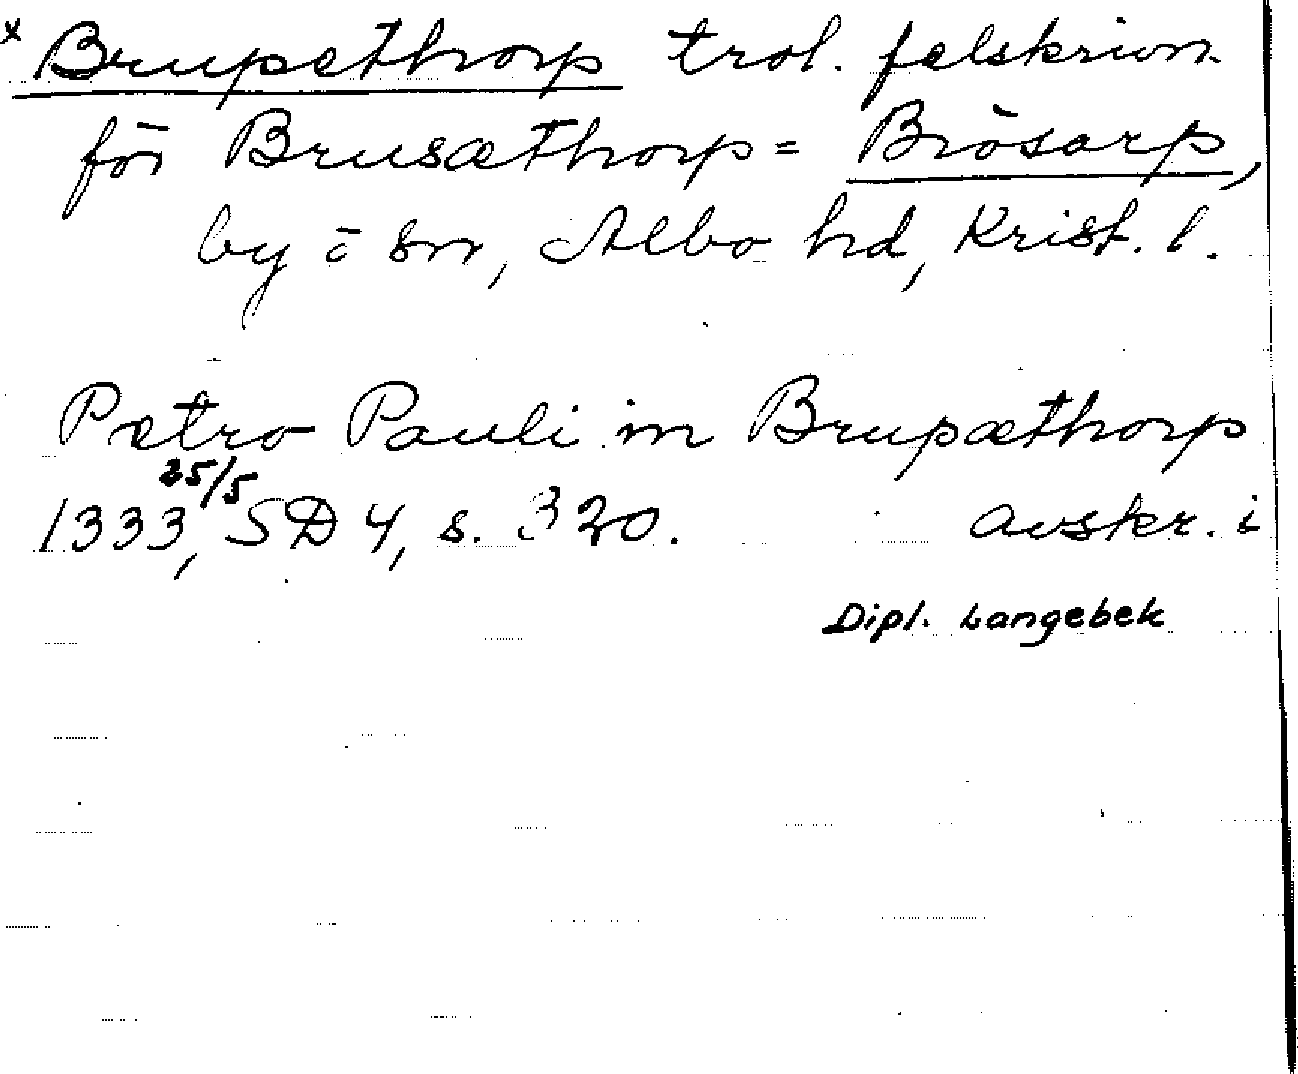 x Brupæthorp trol. felskrivn.
för Brusæthorp = Brösarp,
by o sn, Albo hd, Krist. l.
Pætro Pauli in Brupæthorp
1333 25/5, SD 4, s. 320. avskr. i
Dipl. Langebek